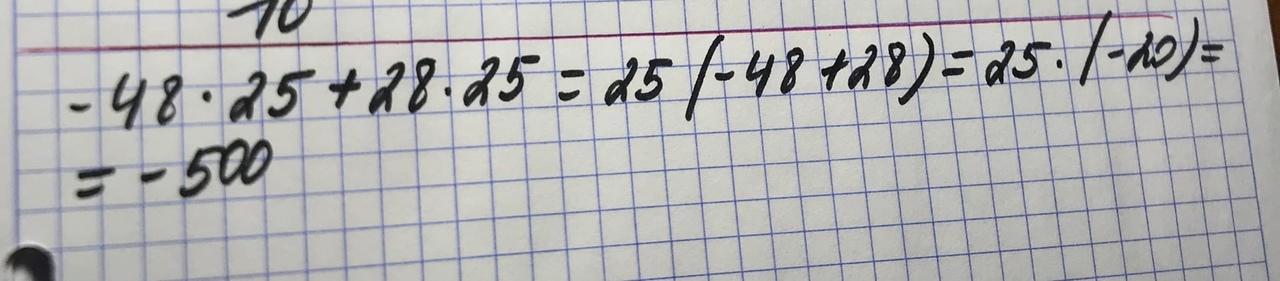 10
- 48 · 25 + 28 · 25 = 25 (-48 + 28) = 25 · (-20) =
= - 500